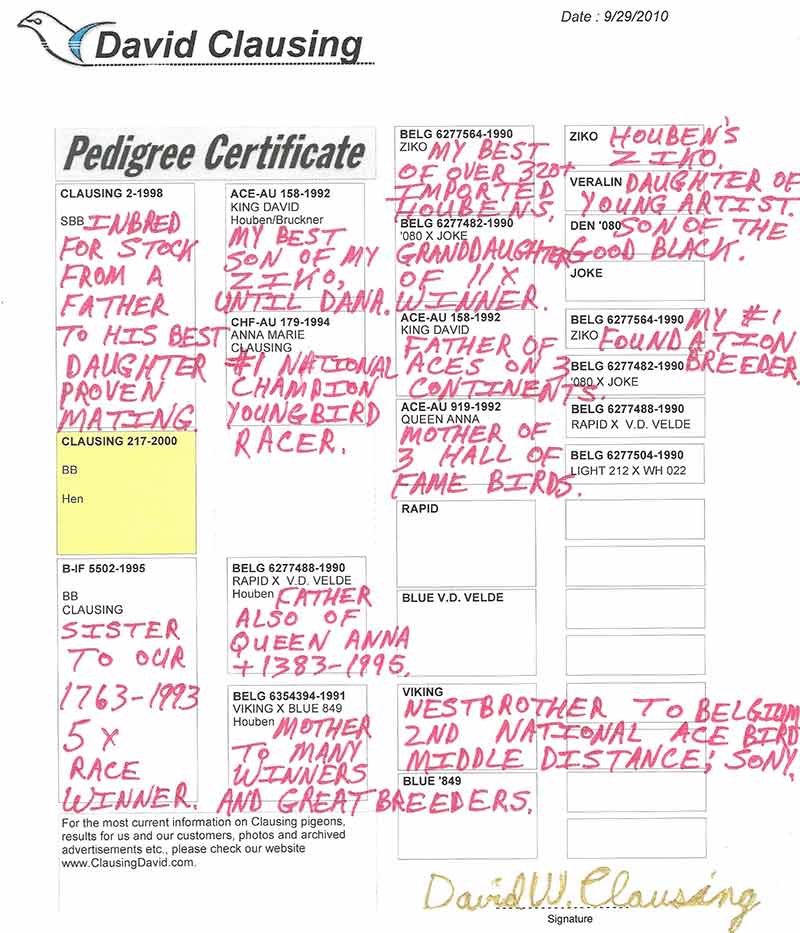 David Clausing
Date : 9/29/2010
Pedigree Certificate
CLAUSING 2-1998
SBB INBRED
FOR STOCK
FROM A
FATHER
TO HIS BEST
DAUGHTER
PROVEN
MATING.
CLAUSING 217-2000
BB
Hen
B-IF 5502-1995
BB
CLAUSING
SISTER
TO OUR
1763-1993
5 X
RACE
WINNER.
ACE-AU 158-1992
KING DAVID
Houben/Bruckner
MY BEST
SON OF MY
ZIKO,
UNTIL DANA.
CHF-AU 179-1994
ANNA MARIE
CLAUSING
#1 NATIONAL
CHAMPION
YOUNGBIRD
RACER.
BELG 6277488-1990
RAPID X V.D. VELDE
Houben FATHER
ALSO OF
QUEEN ANNA
+ 1383-1995.
BELG 6354394-1991
VIKING X BLUE 849
Houben MOTHER
TO MANY
WINNERS
AND GREAT BREEDERS.
BELG 6277564-1990
ZIKO MY BEST
OF OVER 320+
IMPORTED
HOUBENS.
BELG 6277482-1990
'080 X JOKE
GRANDDAUGHTER
OF 11X
WINNER.
ACE-AU 158-1992
KING DAVID
FATHER OF
ACES ON 3
CONTINENTS.
ACE-AU 919-1992
QUEEN ANNA
MOTHER OF
3 HALL OF
FAME BIRDS.
RAPID
BLUE V.D. VELDE
VIKING
NESTBROTHER TO BELGIUM
2ND NATIONAL ACE BIRD
MIDDLE DISTANCE; SONY.
BLUE '849
ZIKO HOUBEN'S
ZIKO.
VERALIN DAUGHTER OF
YOUNG ARTIST.
DEN '080 SON OF THE
GOOD BLACK.
JOKE
BELG 6277564-1990 MY #1
ZIKO FOUNDATION
BREEDER.
BELG 6277482-1990
'080 X JOKE
BELG 6277488-1990
RAPID X V.D. VELDE
BELG 6277504-1990
LIGHT 212 X WH 022
For the most current information on Clausing pigeons,
results for us and our customers, photos and archived
advertisements etc., please check our website
www.ClausingDavid.com.
David W. Clausing
Signature